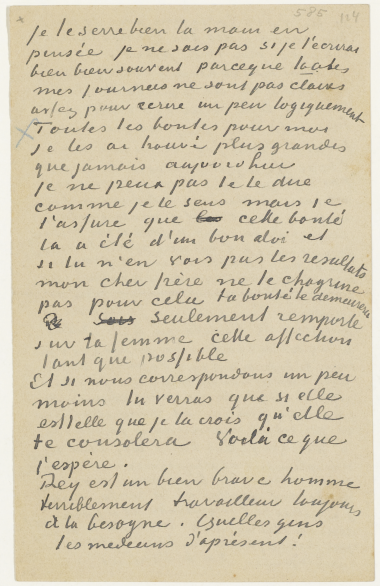 585 114
je te serre bien la main en
pensée je ne sais pas si je t'écrirai
bien bien souvent parceque toutes
mes journées ne sont pas claires
assez pour écrire un peu logiquement
Toutes tes bontes pour moi
je les ai trouvé plus grandes
que jamais aujourd'hui
je ne peux pas te le dire
comme je le sens mais je
t'assure que cette bonté
la a été d'un bon aloi et
si tu n'en vois pas les resultats
mon cher frère ne te chagrine
pas pour cela ta bonté te demeurera
seulement reporte
sur ta femme cette affection
tant que possible
Et si nous correspondons un peu
moins tu verras que si elle
est telle que je la crois qu'elle
te consolera Voilà ce que
j'espère.
Rey est un bien brave homme
terriblement travailleur toujours
à la besogne. Quelles gens
les medecins d'apresent!